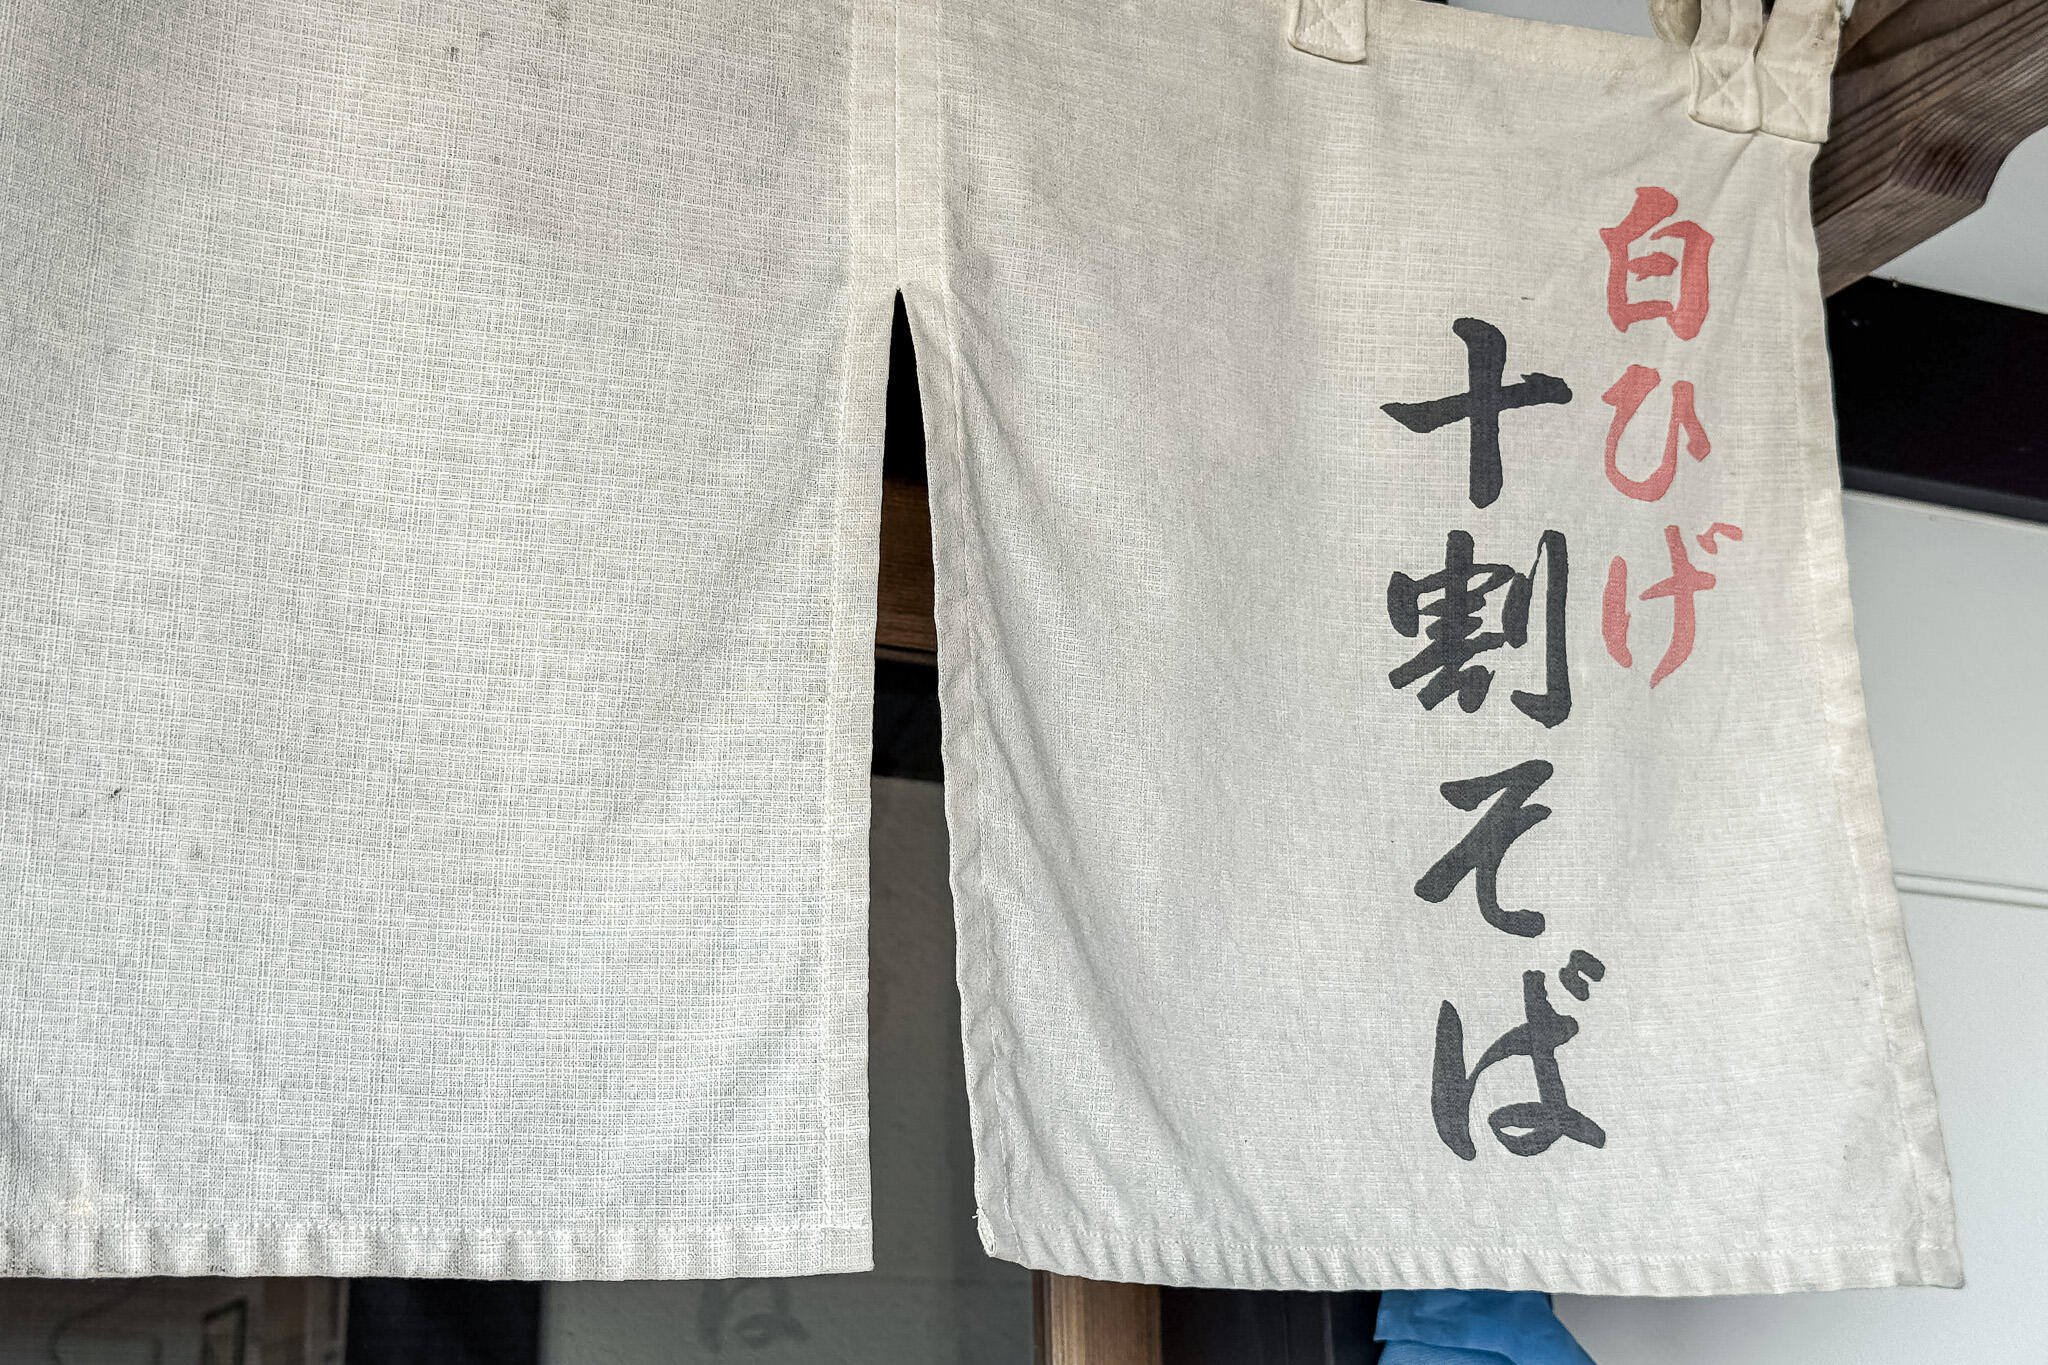 白ひげ
十割そば